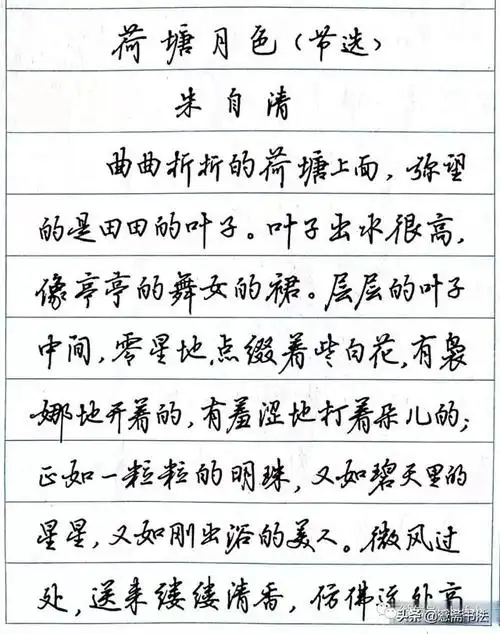 荷塘月色(节选)
朱自清
曲曲折折的荷塘上面,弥望
的是田田的叶子。叶子出水很高,
像亭亭的舞女的裙。层层的叶子
中间,零星地点缀着些白花,有袅
娜地开着的,有羞涩地打着朵儿的;
正如一粒粒的明珠,又如碧天里的
星星,又如刚出浴的美人。微风过
处,送来缕缕清香,仿佛远处高
头条@慈斋书法